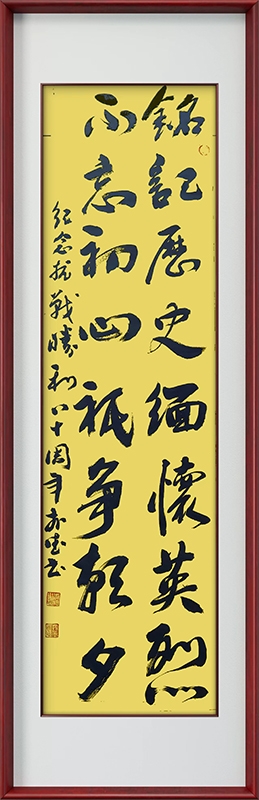 銘記歷史緬懷英烈
不忘初心祇争朝夕
紀念抗戰勝利八十周年 书